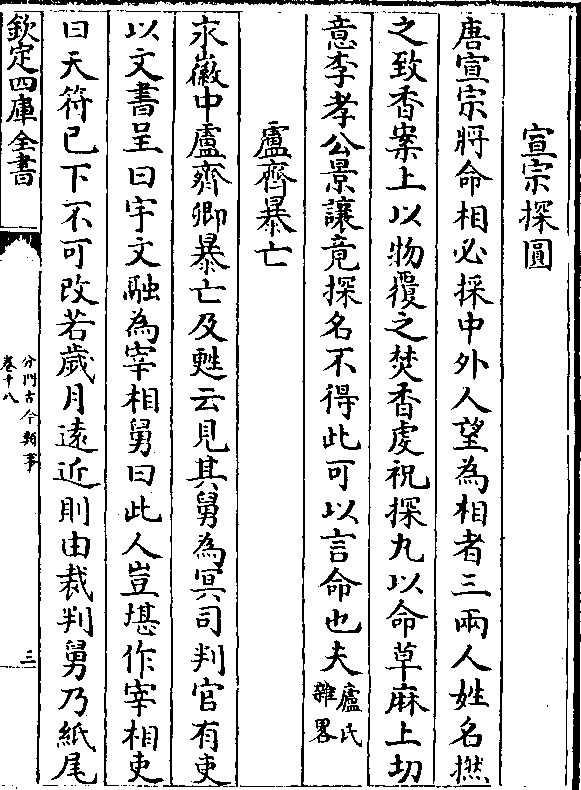 宣宗探圓
唐宣宗將命相必採中外人望為相者三兩人姓名撚
之致香案上以物覆之焚香虔祝探丸以命草麻上切
意李孝公景讓竟探名不得此可以言命也夫盧氏雜畧
盧齊暴亡
永徽中盧齊卿暴亡及甦云見其舅為冥司判官有吏
以文書呈曰宇文融為宰相舅曰此人豈堪作宰相吏
曰天符已下不可改若歲月遠近則由裁判舅乃紙尾
欽定四庫全書
分門古今類事
卷十八
三